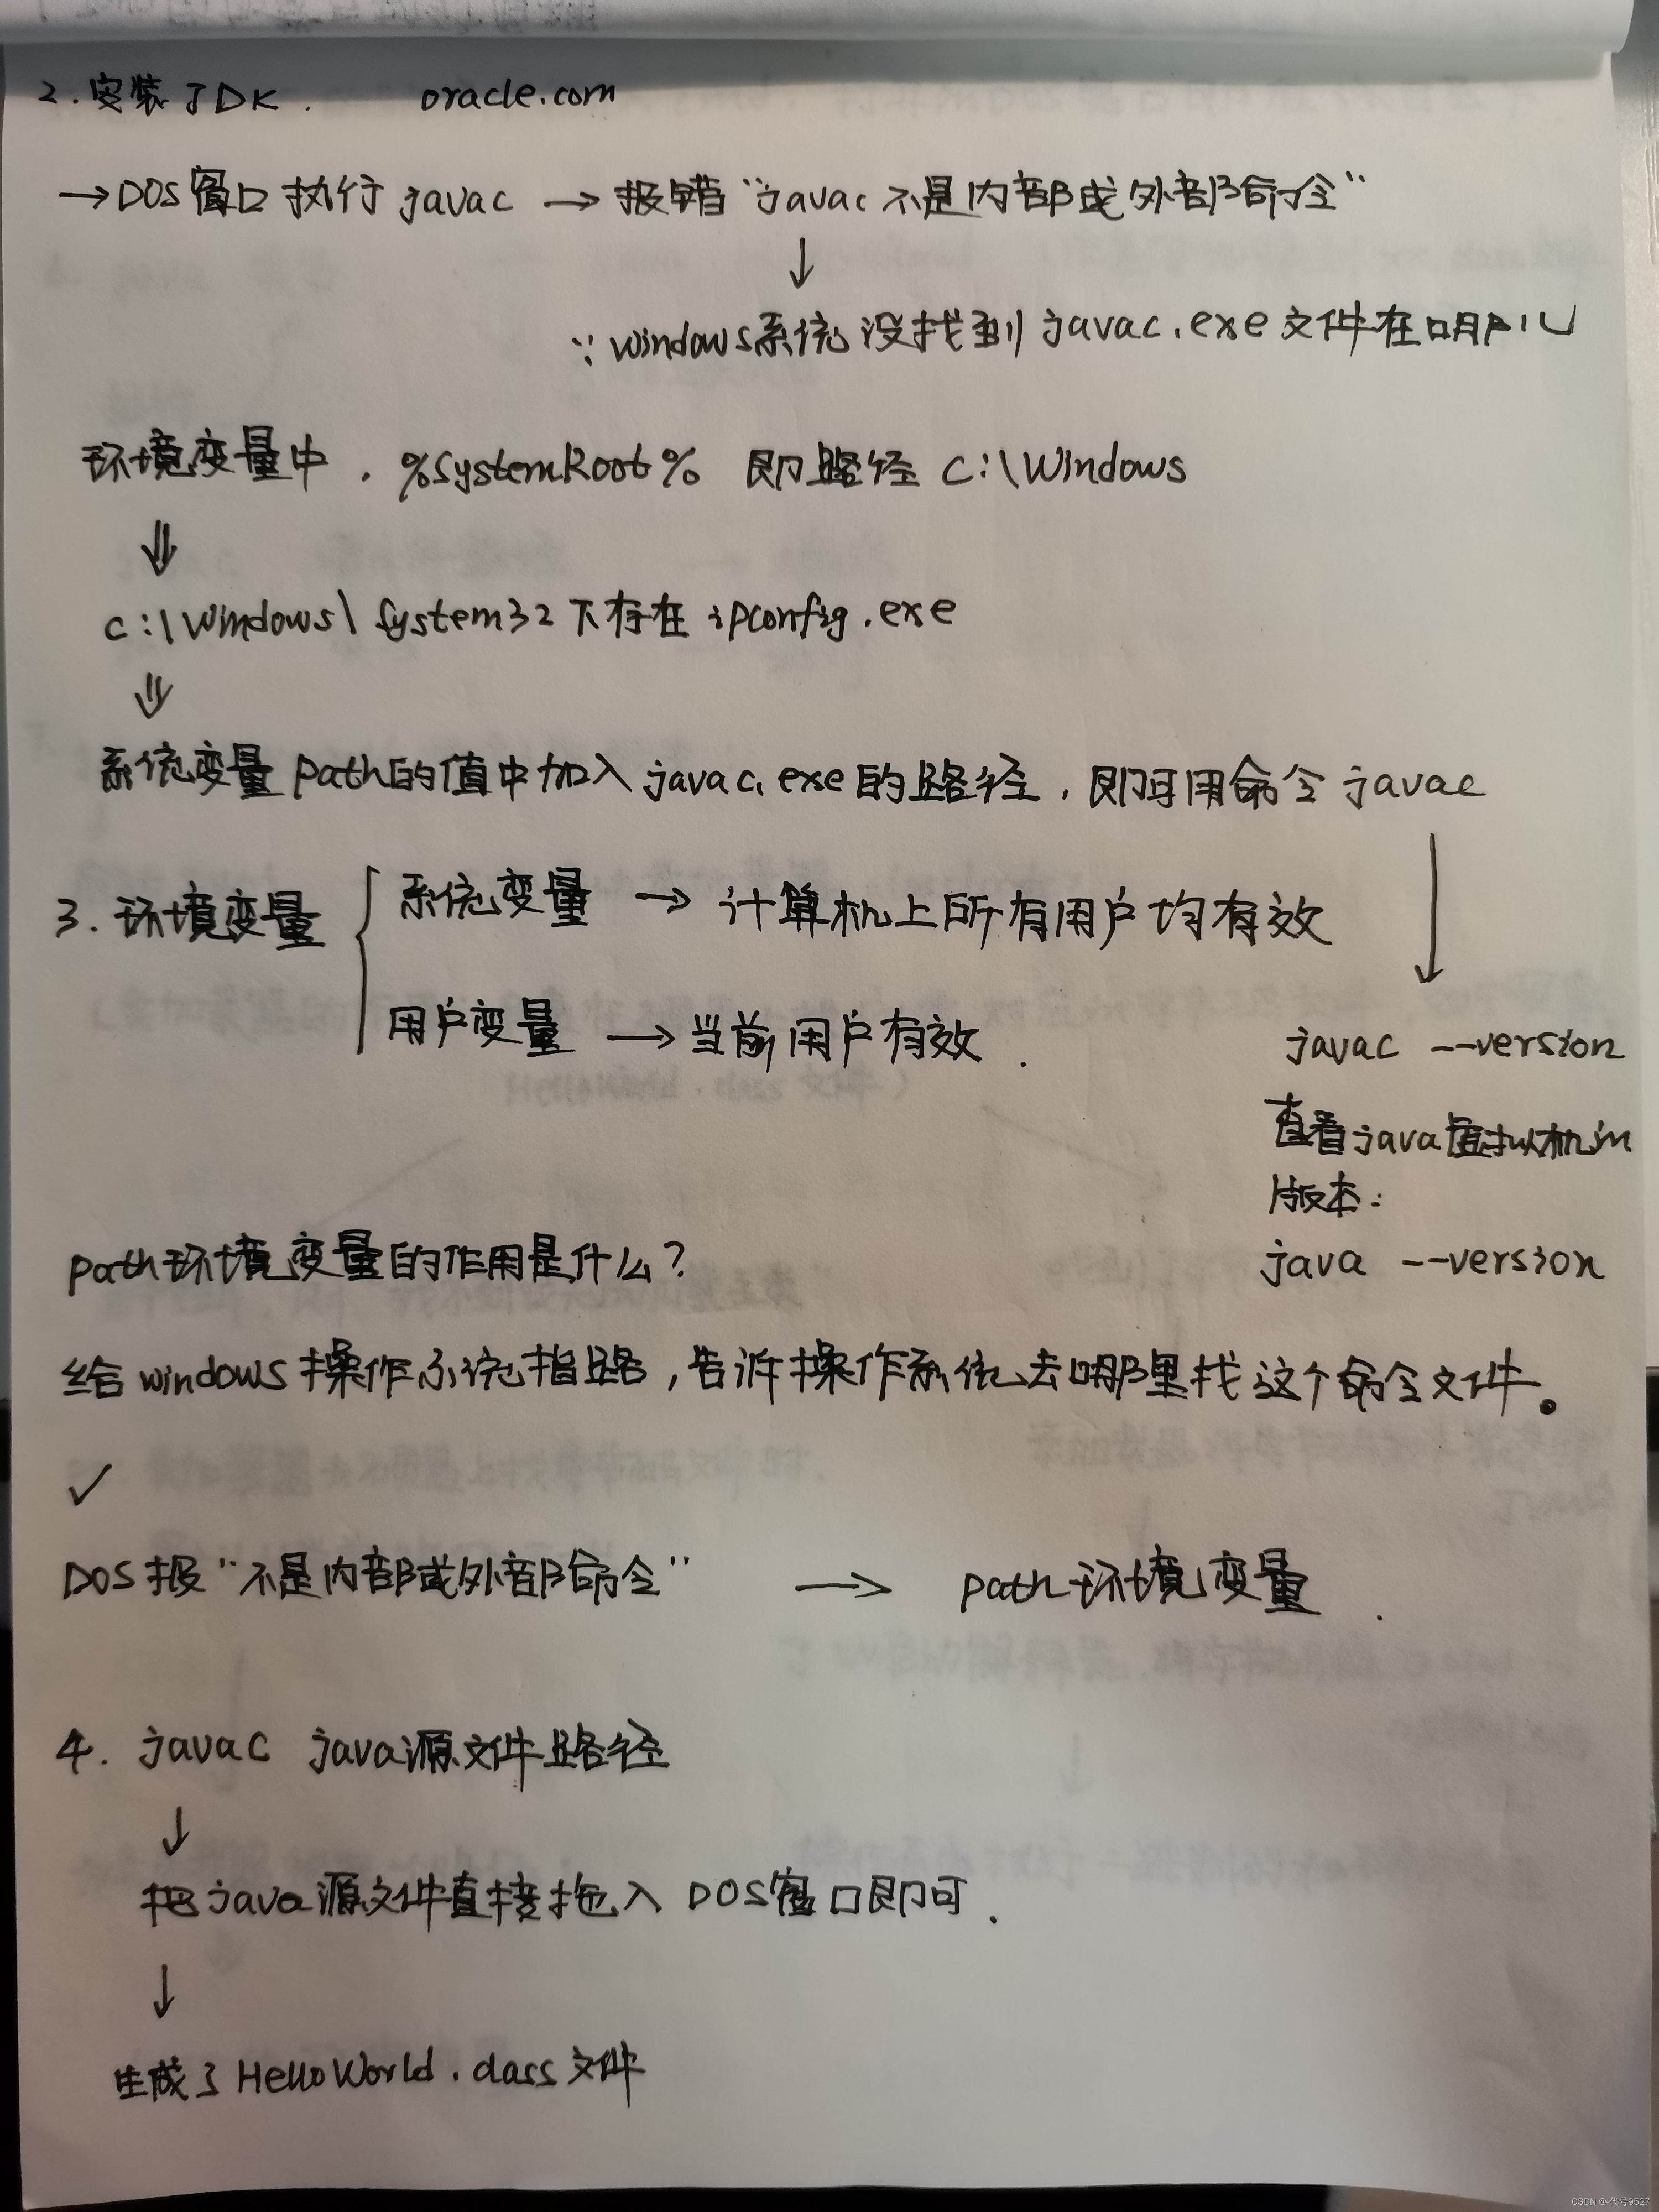 2.安装JDK. oracle.com
→DOS窗口执行javac → 报错“javac不是内部或外部命令”
↓
∵windows系统没找到javac.exe文件在哪儿
环境变量中,%SystemRoot% 即路径 C:\Windows
⇓
C:\Windows\System32下存在ipconfig.exe
⇓
系统变量path的值中加入javac.exe的路径,即可用命令javac
↓
3.环境变量
系统变量 → 计算机上所有用户均有效
用户变量 → 当前用户有效.
javac --version
查看java虚拟机的
版本:
java --version
path环境变量的作用是什么?
给windows操作系统指路,告诉操作系统去哪里找这个命令文件。
✓
DOS报“不是内部或外部命令” → path环境变量.
4. javac java源文件路径
↓
把java源文件直接拖入DOS窗口即可.
↓
生成了HelloWorld.class文件
CSDN @代号9527